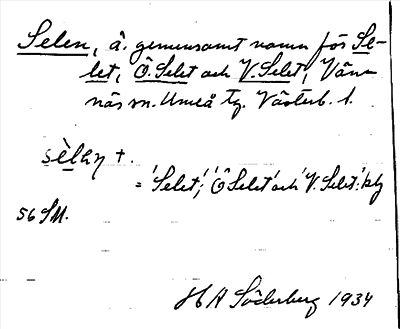 Selen, å. gemensamt namn för Se-
let, Ö. Selet och V. Selet, Vän-
näs sn. Umeå tg. Västerb. l.
sèlɐn +.
= 'Selet', 'Ö Selet' och 'V. Selet'.
56 SM.
H A Söderberg 1934